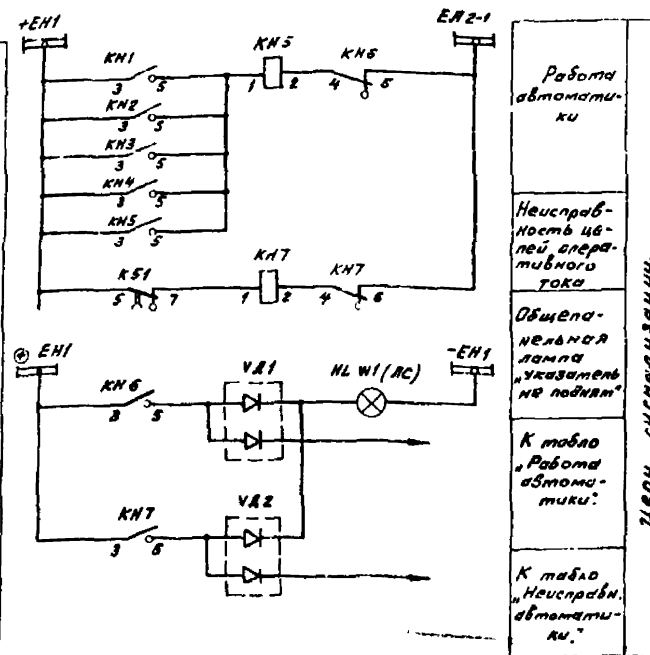 +ЕН1
ЕН2-1
КН1
3 5
КН2
3 5
КН3
3 5
КН4
3 5
КН5
3 5
КН5
1 2
КН6
4 6
KS1
5 7
КН7
1 2
КН7
4 6
⊕ ЕН1
-ЕН1
КН6
3 5
VД1
HL W1 (ЛС)
КН7
3 5
VД2
Работа
автомати-
ки
Неисправ-
ность це-
пей опера-
тивного
тока
Общепа-
нельная
лампа
„Указатель
не поднят"
К табло
„Работа
автома-
тики".
К табло
„Неисправн.
автомати-
ки."
Цепи сигнализации.